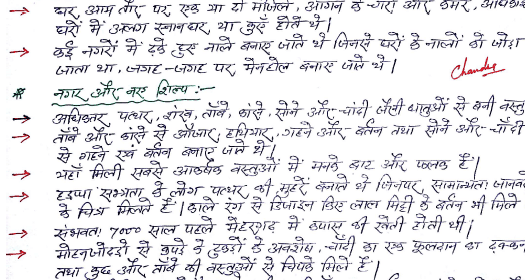 → घर आम तौर पर एक या दो मंजिले, आंगन के चारों ओर कमरे, अधिकांश
घरों में अलग स्नानघर, था कुएँ होते थे।
→ कई नगरों में ढके हुए नाले बनाए जाते थे जिनसे घरों के नालों को जोड़ा
जाता था, जगह-जगह पर मेनहोल बनाए जाते थे।
* नगर और नए शिल्प :-
→ अधिकतर पत्थर, शंख, ताँबे, कांसे, सोने और चाँदी जैसी धातुओं से बनी वस्तु
→ ताँबे और कांसे से औजार, हथियार, गहने और बर्तन तथा सोने और चाँदी
से गहने एवं बर्तन बनाए जाते थे।
→ यहाँ मिली सबसे आकर्षक वस्तुओं में मनके बाट और फलक हैं।
→ हड़प्पा सभ्यता के लोग पत्थर की मुहरें बनाते थे जिनपर, सामान्यतः जानव
के चित्र मिलते हैं। काले रंग से डिजाइन किए लाल मिट्टी के बर्तन भी मिले
→ संभवतः 7000 साल पहले मेहरगढ़ में कपास की खेती होती थी।
→ मोहनजोदड़ो से कपड़े के टुकड़ों के अवशेष, चाँदी का एक फूलदान का ढक्कन
तथा कुछ और ताँबे की वस्तुओं से चिपके मिले हैं।